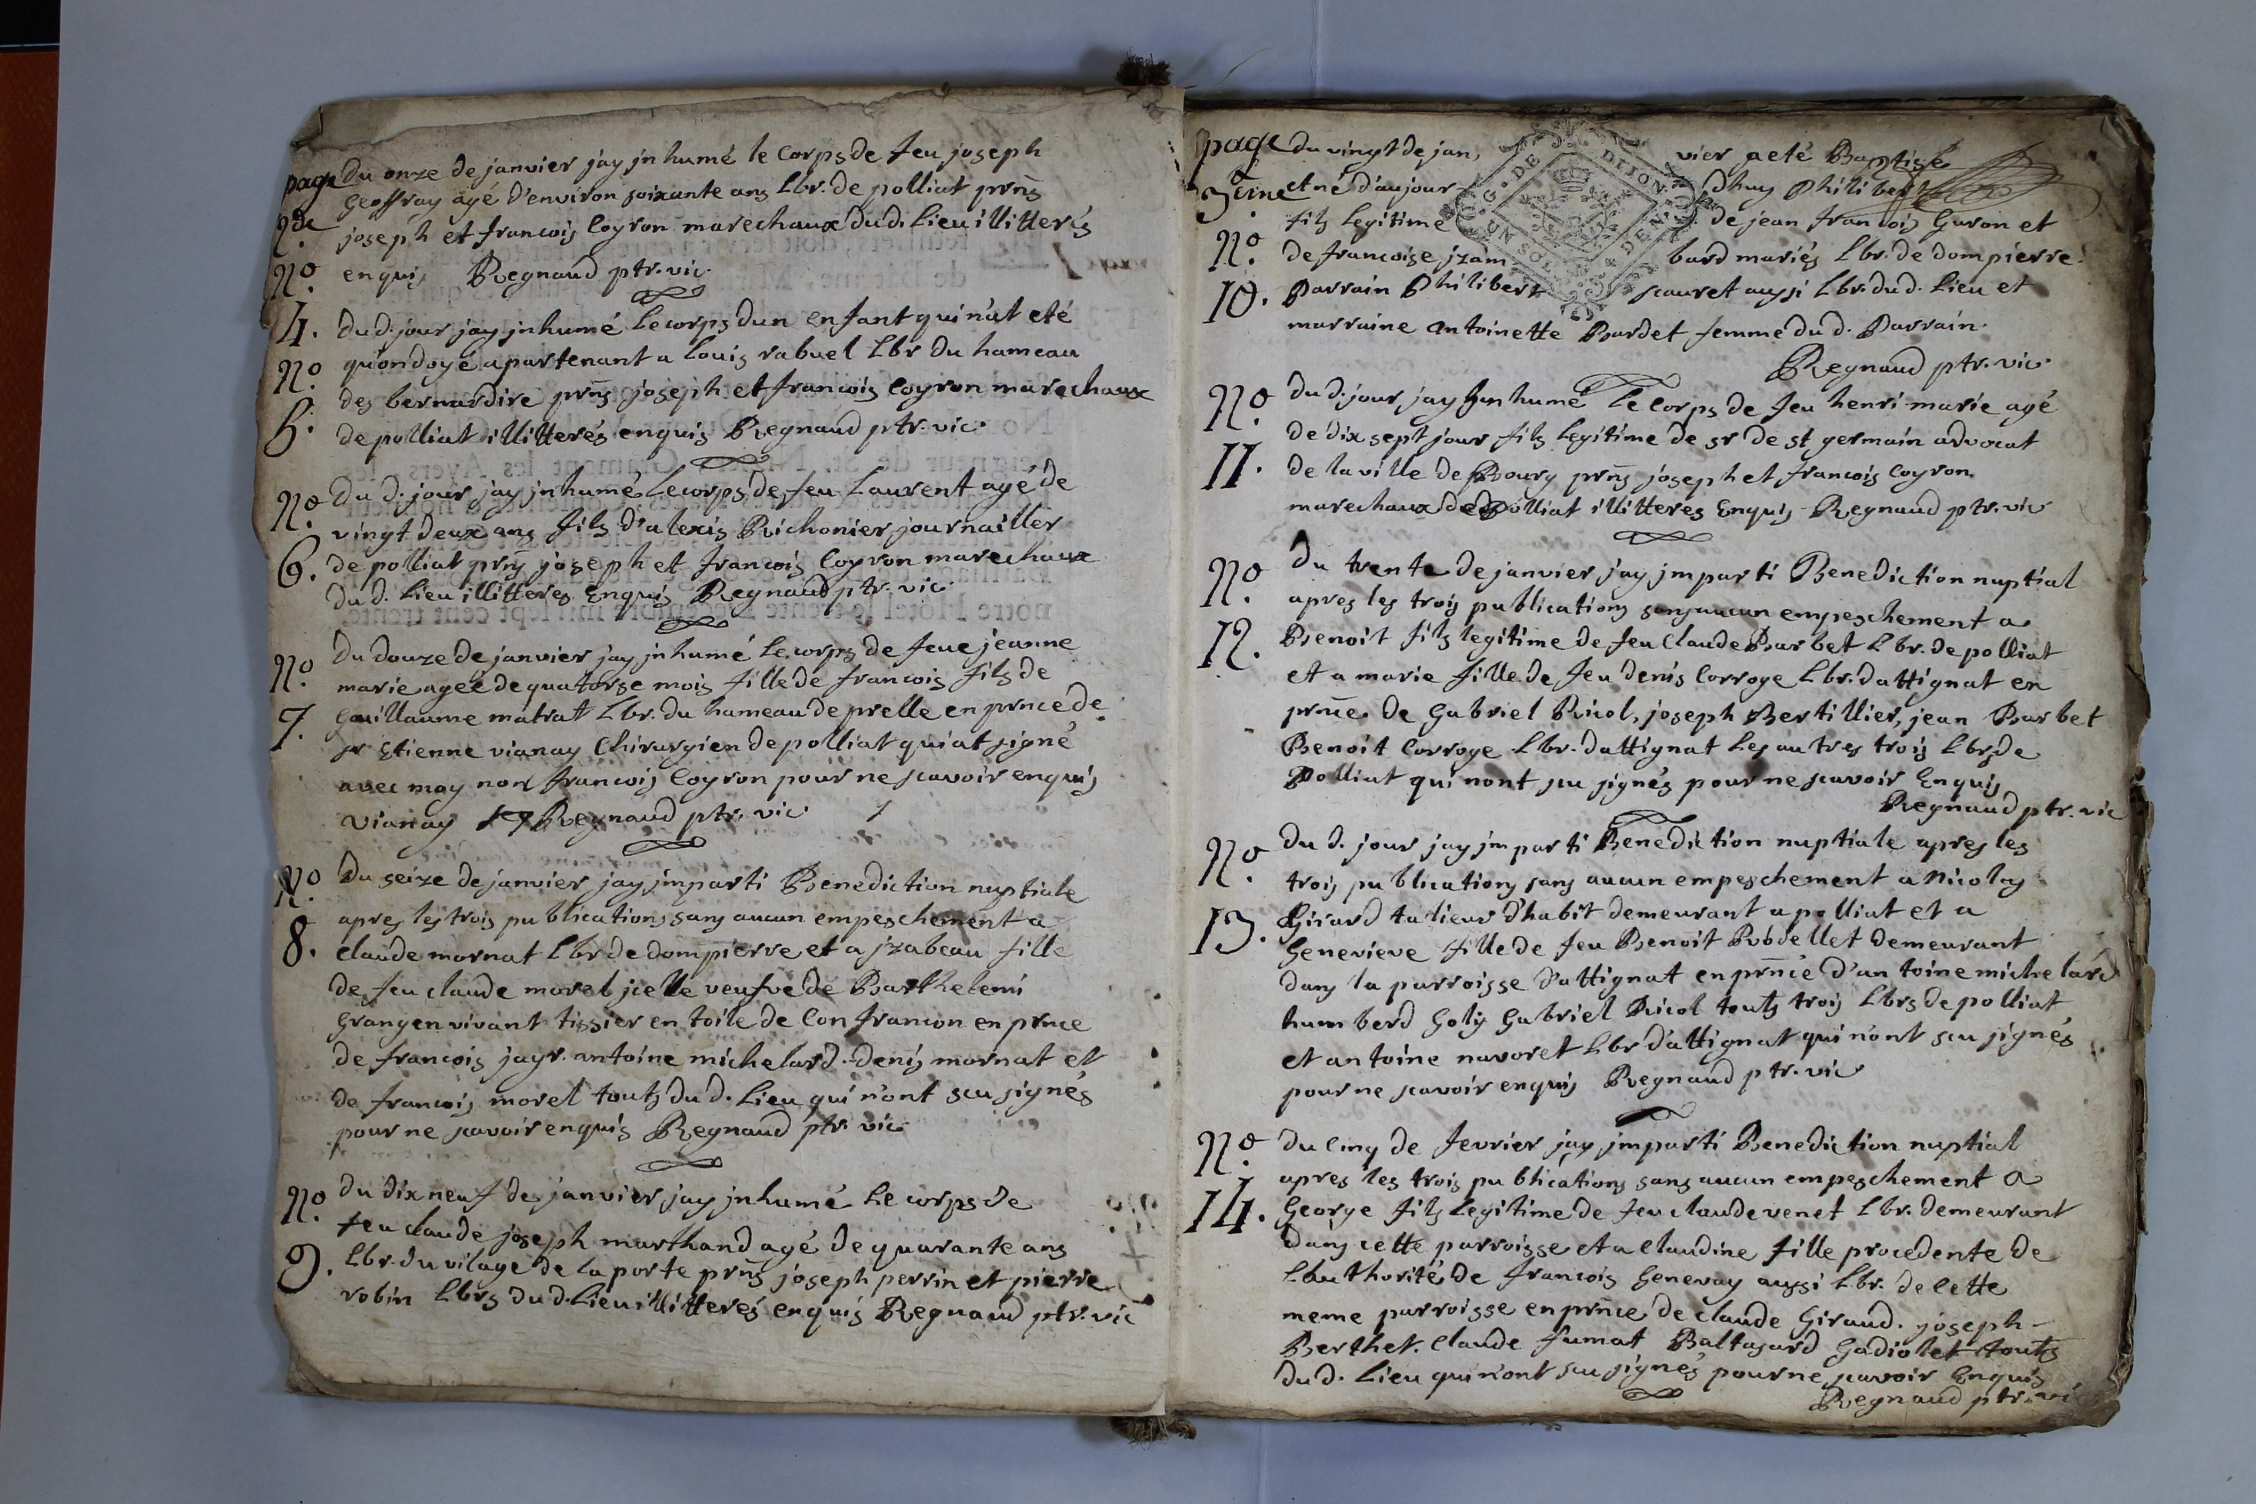 page
2de
du onze de janvier jay jnhumé le corps de feu joseph
Geoffray agé d'environ soixante ans Lbr. de polliat prns
joseph et francois Coyron marechaux dud. Lieu illitterés
enquis Regnaud ptr. vic.
No
4.
dud. jour jay jnhumé le corps dun enfant qui n'at eté
qu'ondoyé apartenant a Louis rabuel Lbr du hameau
des bernardire prns. joseph et francois Coyron marechaux
de polliat illitterés enquis Regnaud ptr. vic.
No
5.
Du d. jour jay jnhumé le corps de feu Laurent agé de
vingt deux ans fils d'alexis Richonier journaillier
de polliat prns joseph et francois Coyron marechaux
du d. Lieu illitteres Enquis Regnaud ptr. vic
No
6.
Du douze de janvier jay jnhumé le corps de feue jeanne
marie agée de quatorse mois fille de francois fils de
Guillaume matrat Lbr. du hameau de prelle en prnce de
sr Etienne vianay Chirurgien de polliat qui at signé
avec moy non francois Coyron pour ne scavoir enquis
vianay Regnaud ptr. vic
No
7.
Du seize de janvier jay jmparti Benediction nuptiale
apres les trois publications sans aucun empeschement a
claude mornat Lbr de dompierre et a jzabeau fille
de feu claude morel jcelle veufve de Barthelemi
Grangen vivant tissier en toile de Confrancon en prnce
de francois jayr. antoine michelard. denis mornat et
de francois morel touts du d. Lieu qui n'ont scu signés
pour ne scavoir enquis Regnaud ptr. vic
No
8.
du dix neuf de janvier jay jnhumé le corps de
feu claude joseph marthand agé de quarante ans
Lbr. du vilage de la porte prns joseph perrin et pierre
robin Lbrs du d. Lieu illitterés enquis Regnaud ptr. vic
No
9.
page
3eme
No
10.
du vingt de janvier a eté Baptisé
et né d'aujourdhuy Philibert
fils legitime de jean francois Guron et
de francoise jzambard mariés Lbr. de dompierre.
Parrain Philibert scauret aussi Lbr. du d. Lieu et
marraine antoinette Bardet femme du d. Parrain.
Regnaud ptr. vic.
No
11.
du d. jour jay jnhumé Le Corps de feu henri marie agé
de dix sept jour fils legitime de sr de st germain advocat
de la ville de Bourg prns joseph et francois Coyron
marechaux de Polliat illitteres Enquis Regnaud ptr. vic
No
12.
Du trente de janvier jay jmparti Benediction nuptial
apres les trois publications sans aucun empeschement a
Benoit fils legitime de feu Claude Barbet Lbr. de polliat
et a marie fille de feu denis Corroge Lbr. dattignat en
prnce. de Gabriel Ricol, joseph Bertillier, jean Barbet
Benoit Corroge Lbr. dattignat les autres trois Lbrs de
Polliat qui nont scu signés pour ne scavoir Enquis
Regnaud ptr. vic
No
13.
Du d. jour jay jmparti Benediction nuptiale apres les
trois publications sans aucun empeschement a Nicolas
Girard talieur d'habit demeurant a polliat et a
Genevieve fille de feu Benoit Robdellet demeurant
dans la parroisse d'attignat en prnce d'antoine michelard
humberd Goly Gabriel Ricol touts trois Lbrs de polliat
et antoine navoret Lbr d'attignat qui n'ont scu signés
pour ne scavoir enquis Regnaud ptr. vic
No
14.
Du cinq de fevrier jay jmparti Benediction nuptial
apres les trois publications sans aucun empeschement a
George fils legitime de feu claude venet Lbr. demeurant
dans cette parroisse et a Claudine fille procedente de
Lauthorité de francois Genevay aussi Lbr. de cette
meme parroisse en prnce de claude Giraud. joseph
Berthet. Claude fumat Baltasard Gadiolet touts
du d. Lieu qui n'ont scu signés pour ne scavoir Enquis
Regnaud ptr. vic